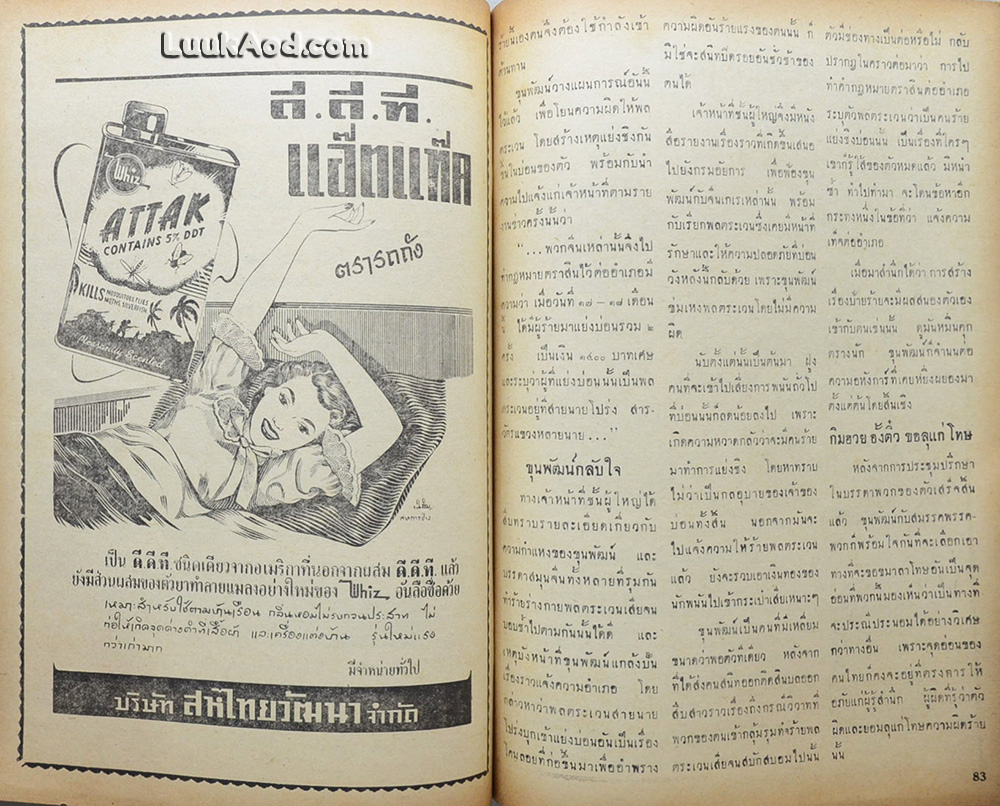 LuukAod.com
ดี.ดี.ที.
แอ๊ตแท๊ค
ตรารถถัง
Whiz
ATTAK
CONTAINS 5% DDT
KILLS MOSQUITOES FLIES
MOTHS SILVERFISH
Pleasantly Scented
เป็น ดี.ดี.ที. ชนิดเดียวจากอเมริกาที่นอกจากผสม ดี.ดี.ที. แล้ว
ยังมีส่วนผสมของตัวยาทำลายแมลงอย่างใหม่ของ Whiz อันลือชื่อด้วย
เหมาะสำหรับใช้ตามบ้านเรือน กลิ่นหอมไม่รบกวนประสาท ไม่
ก่อให้เกิดจุดด่างดำที่เสื้อผ้า และเครื่องแต่งบ้าน รุ่นใหม่แรง
กว่าเก่ามาก
มีจำหน่ายทั่วไป
บริษัท สหไทยวัฒนา จำกัด
ร้ายนี้เองตนจึงต้องใช้กำลังเข้า
ต้านทาน
ขุนพัฒน์วางแผนการณ์อันนี้
ไว้แล้ว เพื่อโยนความผิดให้พล
ตระเวน โดยสร้างเหตุแย่งชิงกัน
ขึ้นในบ่อนของตัว พร้อมกับนำ
ความไปแจ้งแก่เจ้าหน้าที่ตามราย
งานข่าวครั้งนั้นว่า
"...พวกจีนเหล่านั้นจึงไป
ทำกฎหมายตราสินไว้ต่ออำเภอมี
ความว่า เมื่อวันที่ ๑๗ – ๑๘ เดือน
นี้ ได้มีผู้ร้ายมาแย่งบ่อนรวม ๒
ครั้ง เป็นเงิน ๑๔๐๐ บาทเศษ
และระบุว่าผู้ที่แย่งบ่อนนั้นเป็นพล
ตระเวนอยู่ที่สายนายโปร่ง สาร-
วัตรแขวงหลายนาย..."
ขุนพัฒน์กลับใจ
ทางเจ้าหน้าที่ชั้นผู้ใหญ่ได้
สืบทราบรายละเอียดเกี่ยวกับ
ความกำแหงของขุนพัฒน์ และ
บรรดาสมุนจีนทั้งหลายที่รุมกัน
ทำร้ายร่างกายพลตระเวนเสียจน
บอบช้ำไปตามกันนั้นได้ดี และ
เหตุบังหน้าที่ขุนพัฒน์แกล้งปั้น
เรื่องราวแจ้งความอำเภอ โดย
กล่าวหาว่าพลตระเวนสายนาย
โปร่งบุกเข้าแย่งบ่อนอันเป็นเรื่อง
โคมลอยที่ก่อขึ้นมาเพื่ออำพราง
ความผิดอันร้ายแรงของตนนั้น ก็
มิใช่จะสนิทปิดรอยอันชั่วช้าของ
ตนได้
เจ้าหน้าที่ชั้นผู้ใหญ่จึงมีหนัง
สือรายงานเรื่องราวที่เกิดขึ้นเสนอ
ไปยังกรมอัยการ เพื่อฟ้องขุน
พัฒน์กับจีนเกเรเหล่านั้น พร้อม
กับเรียกพลตระเวนซึ่งเคยมีหน้าที่
รักษาและให้ความปลอดภัยที่บ่อน
วังหลังนั้นกลับด้วย เพราะขุนพัฒน์
ข่มเหงพลตระเวนโดยไม่มีความ
ผิด
นับตั้งแต่นั้นเป็นต้นมา ฝูง
คนที่จะเข้าไปเสี่ยงการพนันถั่วโป
ที่บ่อนนั้นก็ลดน้อยลงไป เพราะ
เกิดความหวาดกลัวว่าจะมีคนร้าย
มาทำการแย่งชิง โดยหาทราบ
ไม่ว่าเป็นกลอุบายของเจ้าของ
บ่อนทั้งสิ้น นอกจากมันจะ
ไปแจ้งความให้ร้ายพลตระเวน
แล้ว ยังจะรวบเอาเงินทองของ
นักพนันไปเข้ากระเป๋าเสียเหนาะๆ
ขุนพัฒน์เป็นคนที่มีเหลี่ยม
ขนาดว่าพอตัวทีเดียว หลังจาก
ที่ได้ส่งคนสนิทออกติดสินบลออก
สืบสาวราวเรื่องถึงกรณีวิวาทที่
พวกของตนเข้ากลุ้มรุมทำร้ายพล
ตระเวนเสียจนสบักสบอมไปนั้น
ตัวมีช่องทางเป็นต่อหรือไม่ กลับ
ปรากฏในคราวต่อมาว่า การไป
ทำคำกฎหมายตราสินต่ออำเภอ
ระบุตัวพลตระเวนว่าเป็นคนร้าย
แย่งชิงบ่อนนั้น เป็นเรื่องที่ใครๆ
เขาก็รู้ไส้ของตัวหมดแล้ว มิหนำ
ซ้ำ ทำไปทำมา จะโดนข้อหาอีก
กระทงหนึ่งในข้อที่ว่า แจ้งความ
เท็จต่ออำเภอ
เมื่อมาสำนึกได้ว่า การสร้าง
เรื่องป้ายร้ายจะมีผลสนองตัวเอง
เข้ากับตนเช่นนั้น ดูมันหมิ่นคุก
ตรางนัก ขุนพัฒน์ก็จำนนต่อ
ความอหังการ์ที่เคยหยิ่งผยองมา
ตั้งแต่ต้นโดยสิ้นเชิง
กิมฮวย อั้งติ๋ว ขอลุแก่โทษ
หลังจากการประชุมปรึกษา
ในบรรดาพวกของตัวเสร็จสิ้น
แล้ว ขุนพัฒน์กับสมรรคพรรค-
พวกก็พร้อมใจกันที่จะเลือกเอา
ทางที่จะขอขมาลาโทษอันเป็นจุด
อ่อนที่พวกนั้นมองเห็นว่าเป็นทางที่
จะประณีประนอมได้อย่างวิเศษ
กว่าทางอื่น เพราะจุดอ่อนของ
คนไทยก็คงจะอยู่ที่ตรงการให้
อภัยแก่ผู้รู้สำนึก ผู้ผิดที่รู้ว่าตัว
ผิดและยอมลุแก่โทษความผิดร้าย
นั้น
83